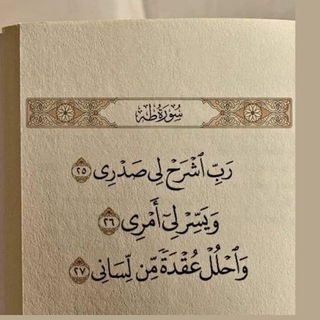 سُورَةُ طه
رَبِّ ٱشْرَحْ لِي صَدْرِي ٢٥
وَيَسِّرْ لِيٓ أَمْرِي ٢٦
وَٱحْلُلْ عُقْدَةً مِّن لِّسَانِي ٢٧